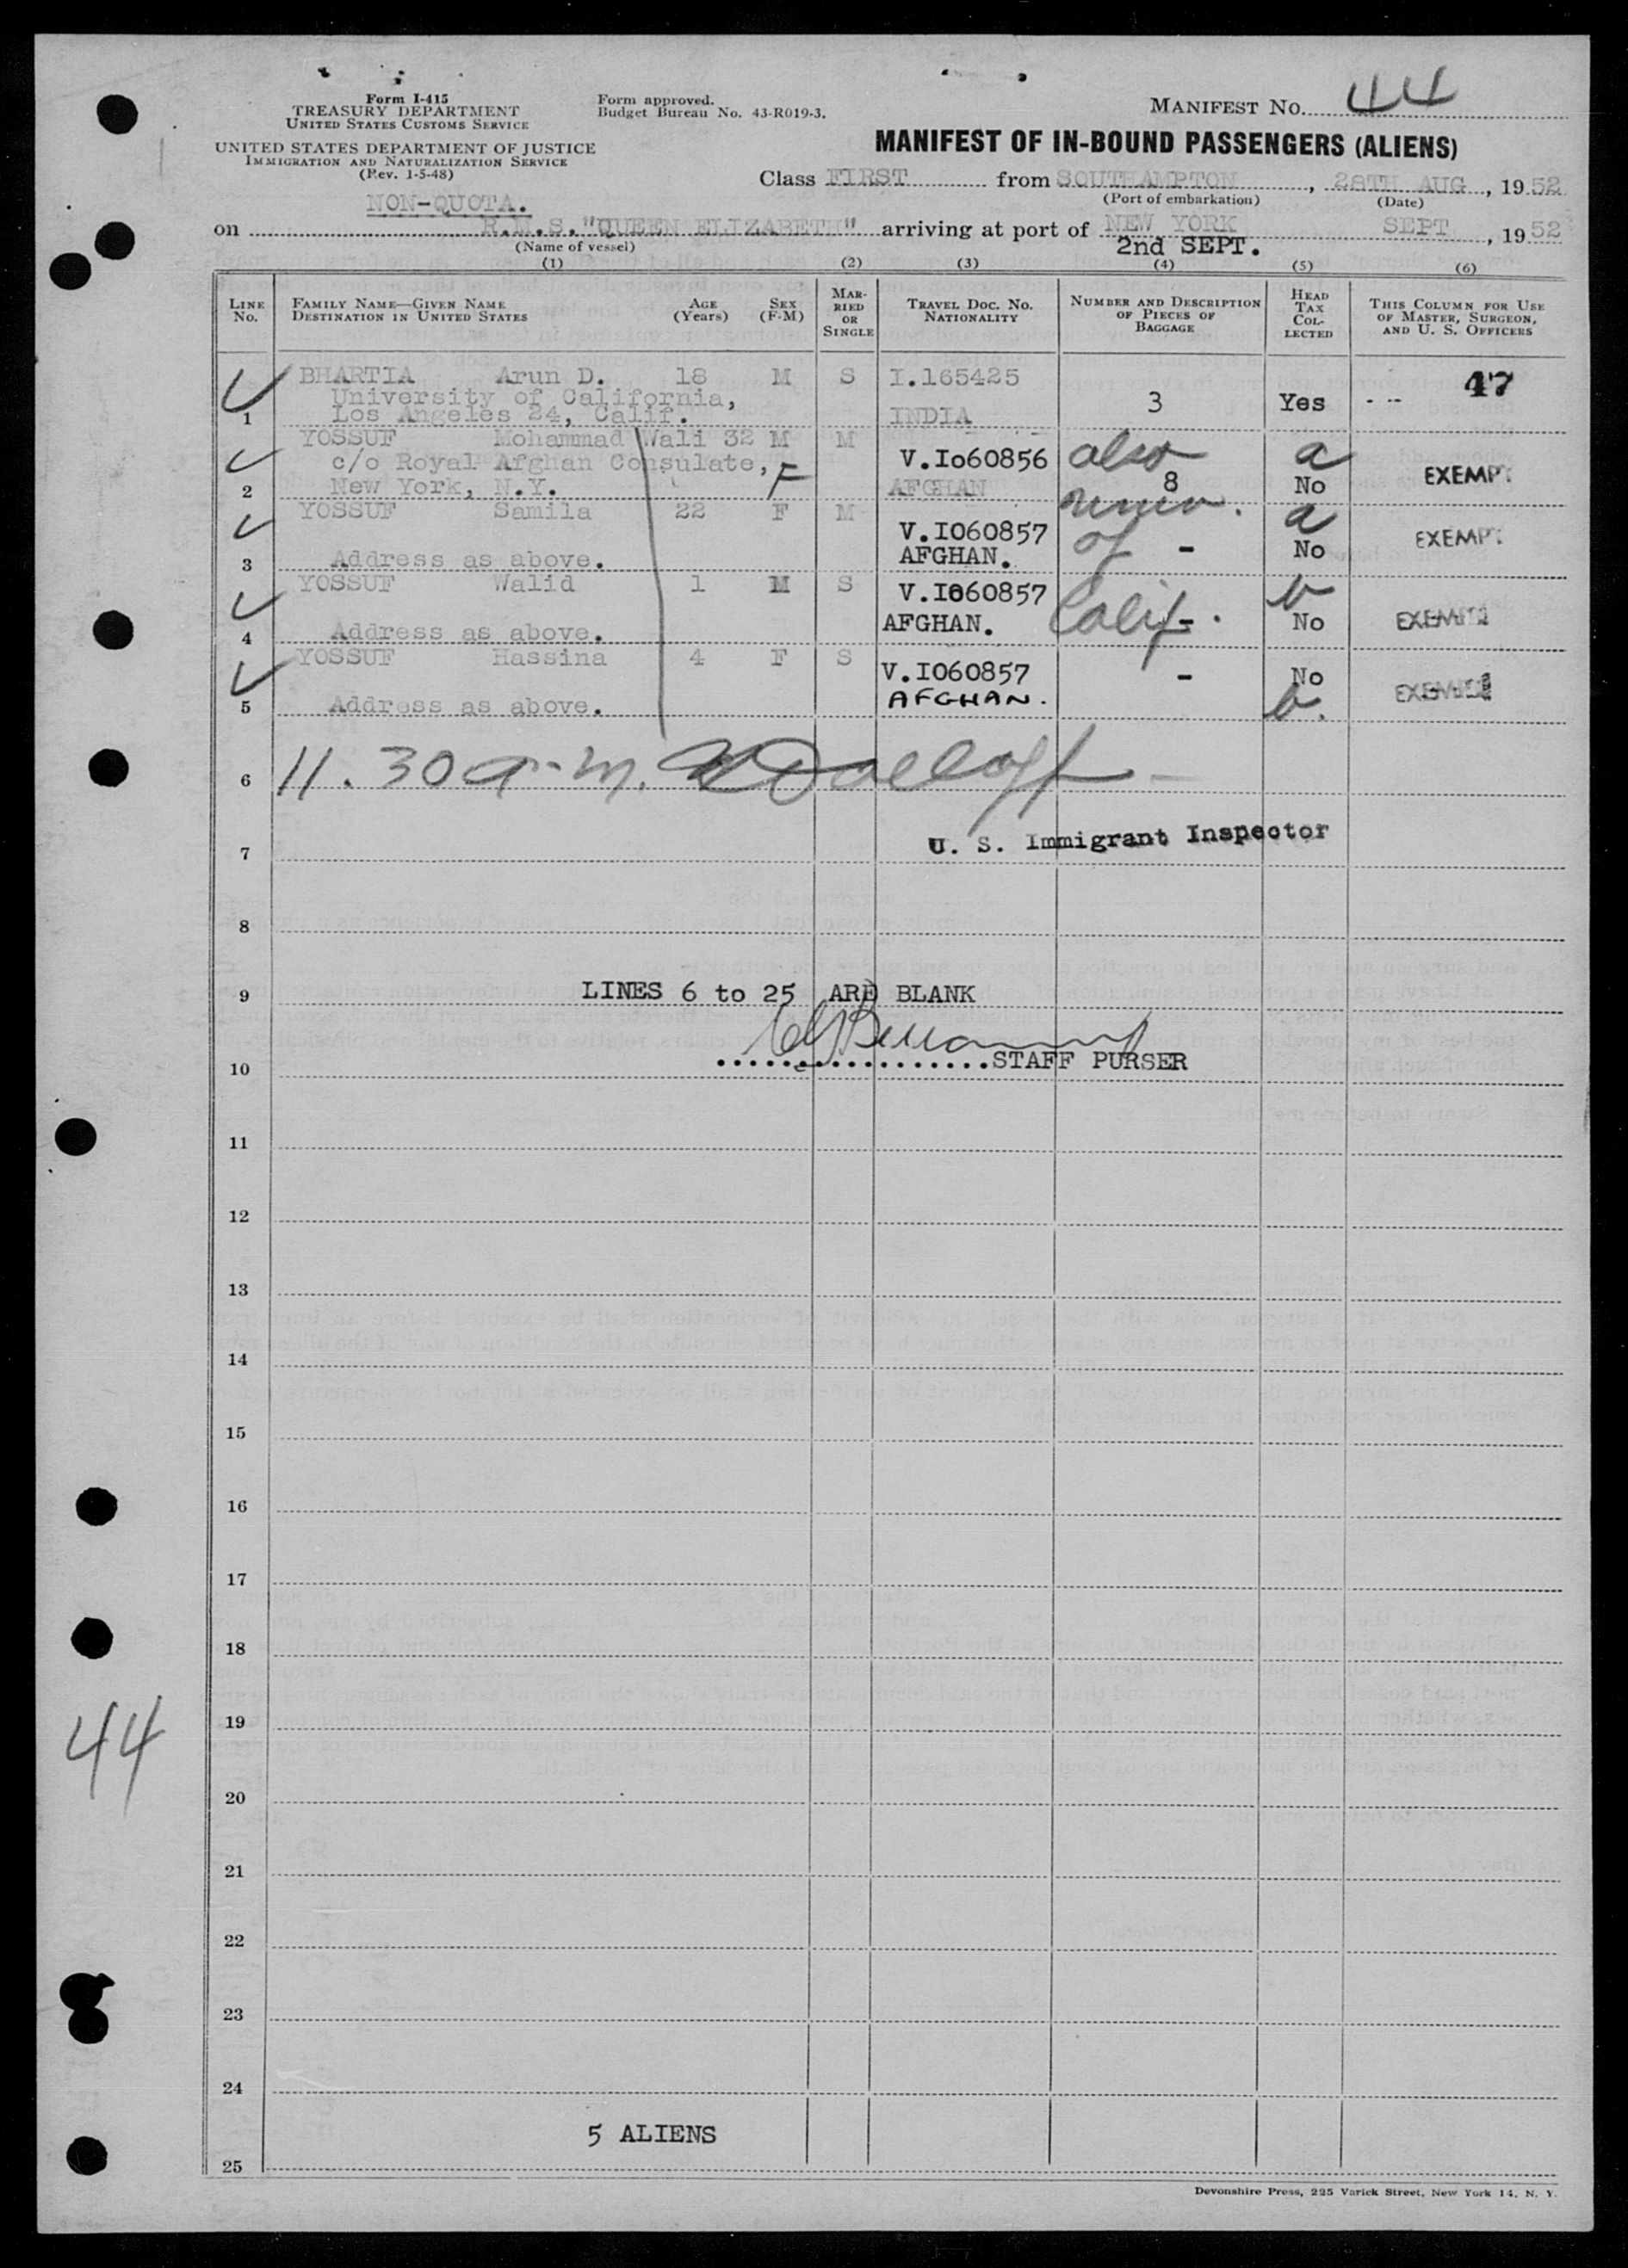 Form I-415
TREASURY DEPARTMENT
UNITED STATES CUSTOMS SERVICE
UNITED STATES DEPARTMENT OF JUSTICE
IMMIGRATION AND NATURALIZATION SERVICE
(Rev. 1-5-48)
Form approved.
Budget Bureau No. 43-R019-3.
MANIFEST No. 44
MANIFEST OF IN-BOUND PASSENGERS (ALIENS)
Class FIRST from SOUTHAMPTON, 28TH AUG, 1952
(Port of embarkation) (Date)
NON-QUOTA.
on R.M.S. "QUEEN ELIZABETH" arriving at port of NEW YORK SEPT, 1952
(Name of vessel) 2nd SEPT.
(1) (2) (3) (4) (5) (6)
LINE No. FAMILY NAME—GIVEN NAME DESTINATION IN UNITED STATES AGE (Years) SEX (F-M) MARRIED OR SINGLE TRAVEL DOC. No. NATIONALITY NUMBER AND DESCRIPTION OF PIECES OF BAGGAGE HEAD TAX COLLECTED THIS COLUMN FOR USE OF MASTER, SURGEON, AND U. S. OFFICERS
BHARTIA Arun D. 18 M S I.165425 47
University of California, 3 Yes
1 Los Angeles 24, Calif. INDIA
YOSSUF Mohammad Wali 32 M M
c/o Royal Afghan Consulate, F V.Io60856 also a EXEMPT
2 New York, N.Y. AFGHAN 8 No
YOSSUF Samila 22 F M a
V.I060857 EXEMPT
3 Address as above. AFGHAN. of - No
YOSSUF Walid 1 M S V.I060857 b
4 Address as above. AFGHAN. Calif. - No EXEMPT
YOSSUF Hassina 4 F S V.I060857 - No
5 Address as above. AFGHAN. b. EXEMPT
6 11.30 a.m.
7 U. S. Immigrant Inspector
8
9 LINES 6 to 25 ARE BLANK
10 STAFF PURSER
11
12
13
14
15
16
17
18
19
44
20
21
22
23
24
5 ALIENS
25
Devonshire Press, 225 Varick Street, New York 14, N. Y.